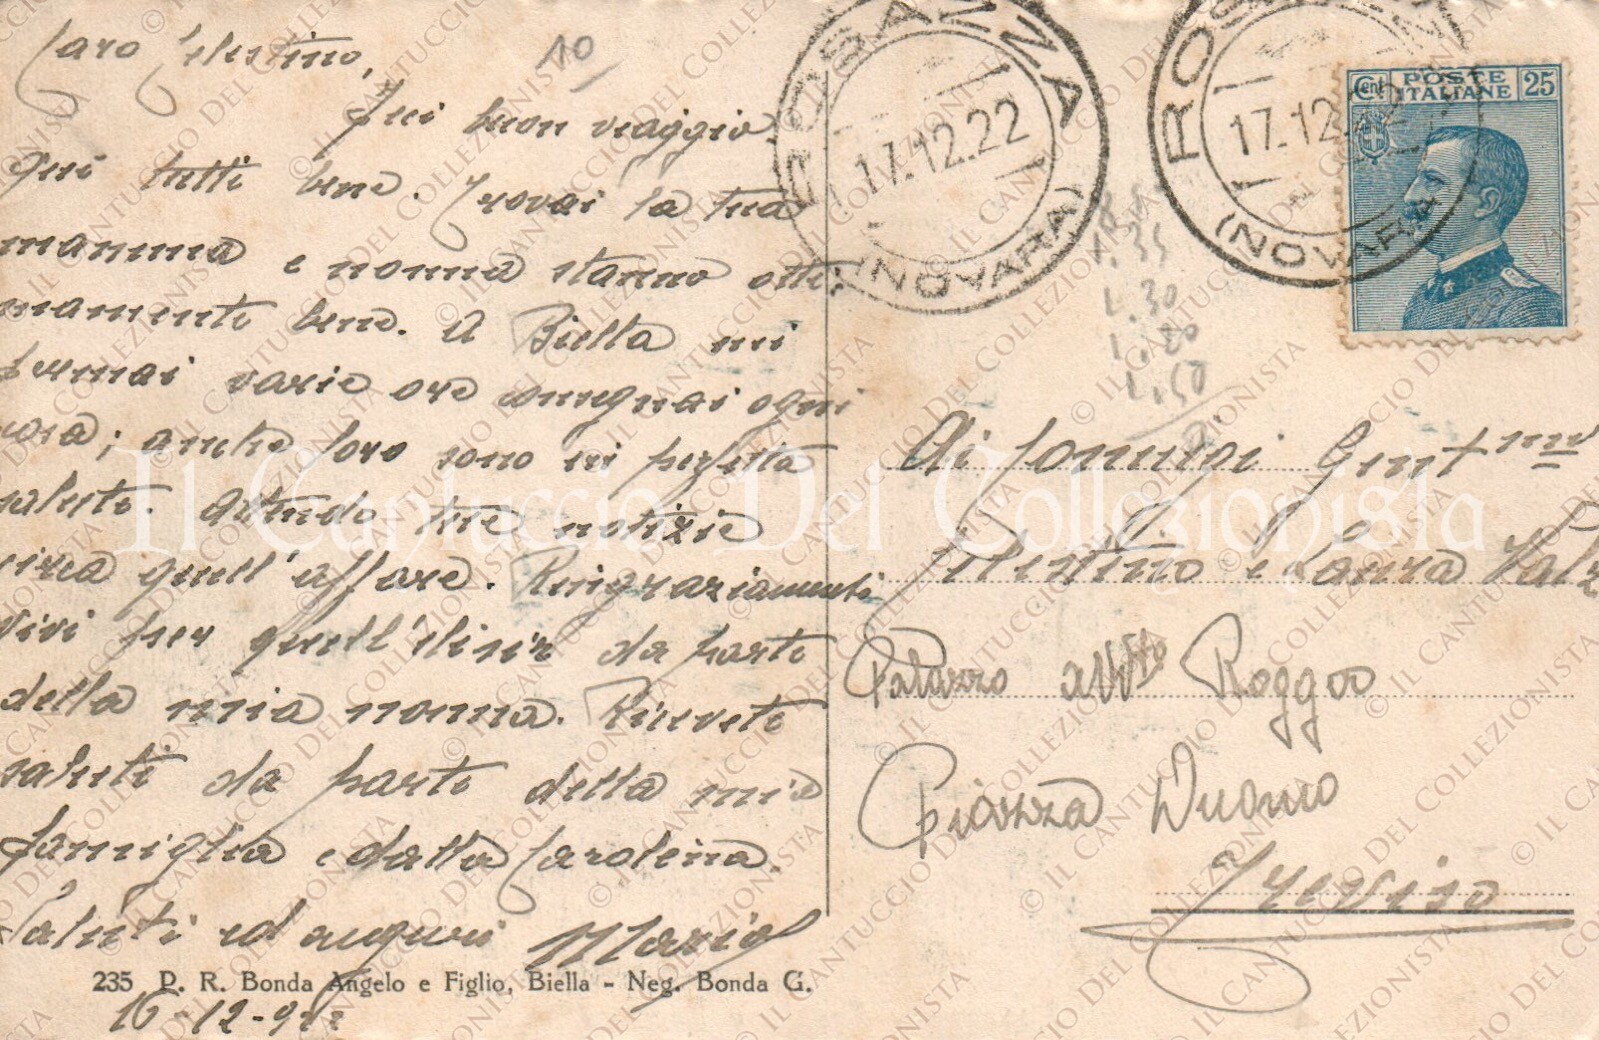 Caro Celestino,
10
Feci buon viaggio,
qui tutti bene. Trovai la tua
mamma e nonna stanno otti-
mamente bene. A Biella mi
fermai varie ore consegnai ogni
cosa; anche loro sono in perfetta
salute. Attendo tue notizie
circa quell'affare. Ringraziamenti
vivi per quell'elisir da parte
della mia nonna. Ricevete
saluti da parte della mia
famiglia e dalla Carolina.
Saluti ed auguri Mario
235 D. R. Bonda Angelo e Figlio, Biella - Neg. Bonda G.
16-12-922
ROSAZZA
17.12.22
(NOVARA)
ROSAZZA
17.12.22
(NOVARA)
Cent POSTE ITALIANE 25
1.35
1.30
1.50
Ai Coniugi Gent.mi
Celestino e Laura
Palazzo Roggero
Piazza Duomo
Treviso
Il Cantuccio Del Collezionista
© IL CANTUCCIO DEL COLLEZIONISTA